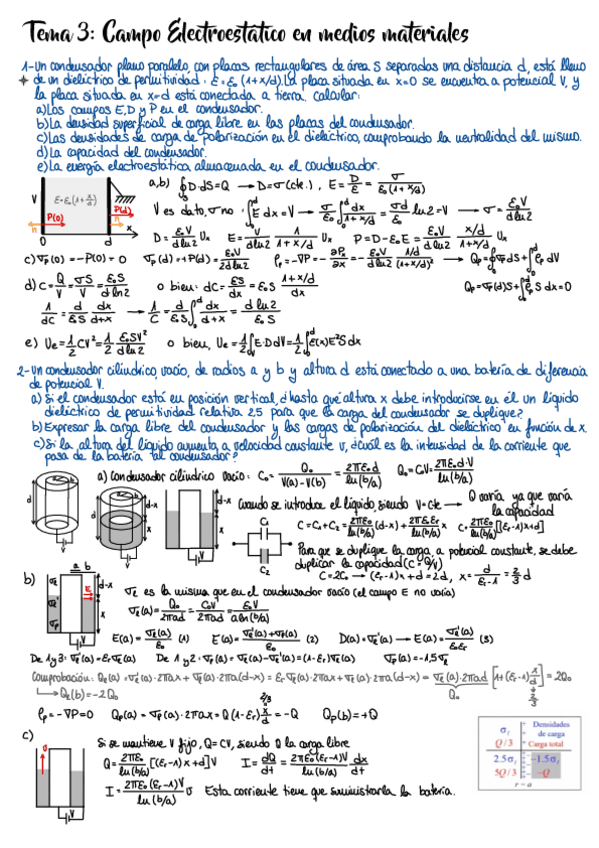 Tema 3: Campo Electroestático en medios materiales
1-Un condensador plano paralelo, con placas rectangulares de área S separadas una distancia d, está lleno
de un dieléctrico de permitividad: ε=ε₀(1+x/d). La placa situada en x=0 se encuentra a potencial V, y
la placa situada en x=d está conectada a tierra. Calcular:
a) Los campos E, D y P en el condensador.
b) La densidad superficial de carga libre en las placas del condensador.
c) Las densidades de carga de polarización en el dieléctrico, comprobando la neutralidad del mismo.
d) La capacidad del condensador.
e) La energía electroestática almacenada en el condensador.
V ε=ε₀(1+x/d) P(0) P(d) n n 0 d x
a,b) ∮D·dS=Q → D=σ(cte.), E=D/ε=σ/ε₀(1+x/d)
V es dato, σ no: ∫₀ᵈE dx=V → σ/ε₀∫₀ᵈdx/(1+x/d)=σd/ε₀ ln2=V → σ=ε₀V/d ln2
D=ε₀V/d ln2 Ux E=V/d ln2 1/(1+x/d) Ux P=D-ε₀E=ε₀V/d ln2 (x/d)/(1+x/d) Ux
c) σp(0)=-P(0)=0 σp(d)=+P(d)=ε₀V/2d ln2 ρp=-∇P=-∂Px/∂x=-ε₀V/d ln2 (1/d)/(1+x/d)² → Qp=∮σp dS+∫ρp dV
Qp=σp(d)S+∫₀ᵈρp S dx=0
d) C=Q/V=σS/V=ε₀S/d ln2 o bien: dC=εS/dx=ε₀S (1+x/d)/dx
1/dC=d/ε₀S dx/(d+x) → 1/C=d/ε₀S∫₀ᵈdx/(d+x)=d ln2/ε₀S
e) Ue=1/2 CV²=1/2 ε₀SV²/d ln2 o bien, Ue=1/2∫E·D dV=1/2∫₀ᵈε(x)E²S dx
2-Un condensador cilíndrico, vacío, de radios a y b y altura d está conectado a una batería de diferencia
de potencial V.
a) Si el condensador está en posición vertical, ¿hasta qué altura x debe introducirse en él un líquido
dieléctrico de permitividad relativa 2,5 para que la carga del condensador se duplique?
b) Expresar la carga libre del condensador y las cargas de polarización del dieléctrico en función de x.
c) Si la altura del líquido aumenta a velocidad constante v, ¿cuál es la intensidad de la corriente que
pasa de la batería tal condensador?
a) Condensador cilíndrico vacío: C₀=Q₀/(V(a)-V(b))=2πε₀d/ln(b/a) Q₀=C₀V=2πε₀d·V/ln(b/a)
d d d-x x d-x x V
Cuando se introduce el líquido, siendo V=cte → Q varía ya que varía
la capacidad
C₁ C₂
C=C₁+C₂=2πε₀/ln(b/a)(d-x)+2πε₀εr x/ln(b/a) C=2πε₀/ln(b/a)[(εr-1)x+d]
Para que se duplique la carga, a potencial constante, se debe
duplicar la capacidad (C=Q/V)
C=2C₀ → (εr-1)x+d=2d, x=d/(εr-1)=2/3 d
b) a b σℓ σℓ' σp E d-x x V
σℓ es la misma que en el condensador vacío (el campo E no varía)
σℓ(a)=Q₀/2πad=C₀V/2πad=ε₀V/a ln(b/a)
E(a)=σℓ(a)/ε₀ (1) E(a)=(σℓ'(a)+σp(a))/ε₀ (2) D(a)=σℓ'(a) → E(a)=σℓ'(a)/ε₀εr (3)
De 1 y 3: σℓ'(a)=εrσℓ(a) De 1 y 2: σp(a)=σℓ(a)-σℓ'(a)=(1-εr)σℓ(a) σp(a)=-1,5σℓ
Comprobación: Qℓ(a)=σℓ'(a)·2πax+σℓ(a)·2πa(d-x)=εrσℓ(a)·2πax+σℓ(a)·2πa(d-x)=σℓ(a)·2πad[1+(εr-1)x/d]=2Q₀
Q₀ 2/3
↳ Qℓ(b)=-2Q₀
ρp=-∇P=0 Qp(a)=σp(a)·2πax=Q(1-εr)x/d=-Q Qp(b)=+Q
2/3
c) v V
Si se mantiene V fijo, Q=CV, siendo Q la carga libre
Q=2πε₀/ln(b/a)[(εr-1)x+d]V I=dQ/dt=2πε₀(εr-1)V/ln(b/a) dx/dt
I=2πε₀(εr-1)V/ln(b/a) v Esta corriente tiene que suministrarla la batería.
σf Densidades de carga
Q/3 Carga total
2.5σf -1.5σf
5Q/3 -Q
r=a